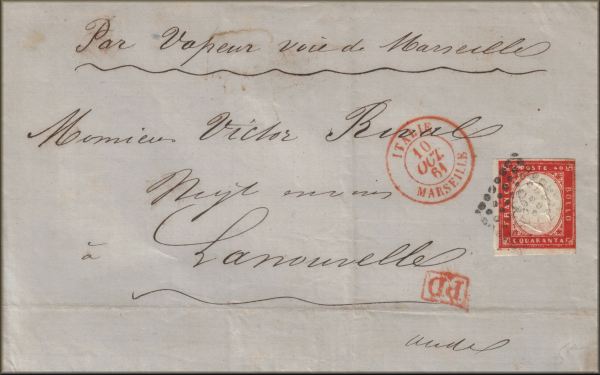 Par Vapeur voie de Marseille
Monsieur Victor Rival
à
Lanouvelle
aude
ITALIE
10
OCT.
61
MARSEILLE
PD
FRANCO
POSTE 40
BOLLO
C. QUARANTA